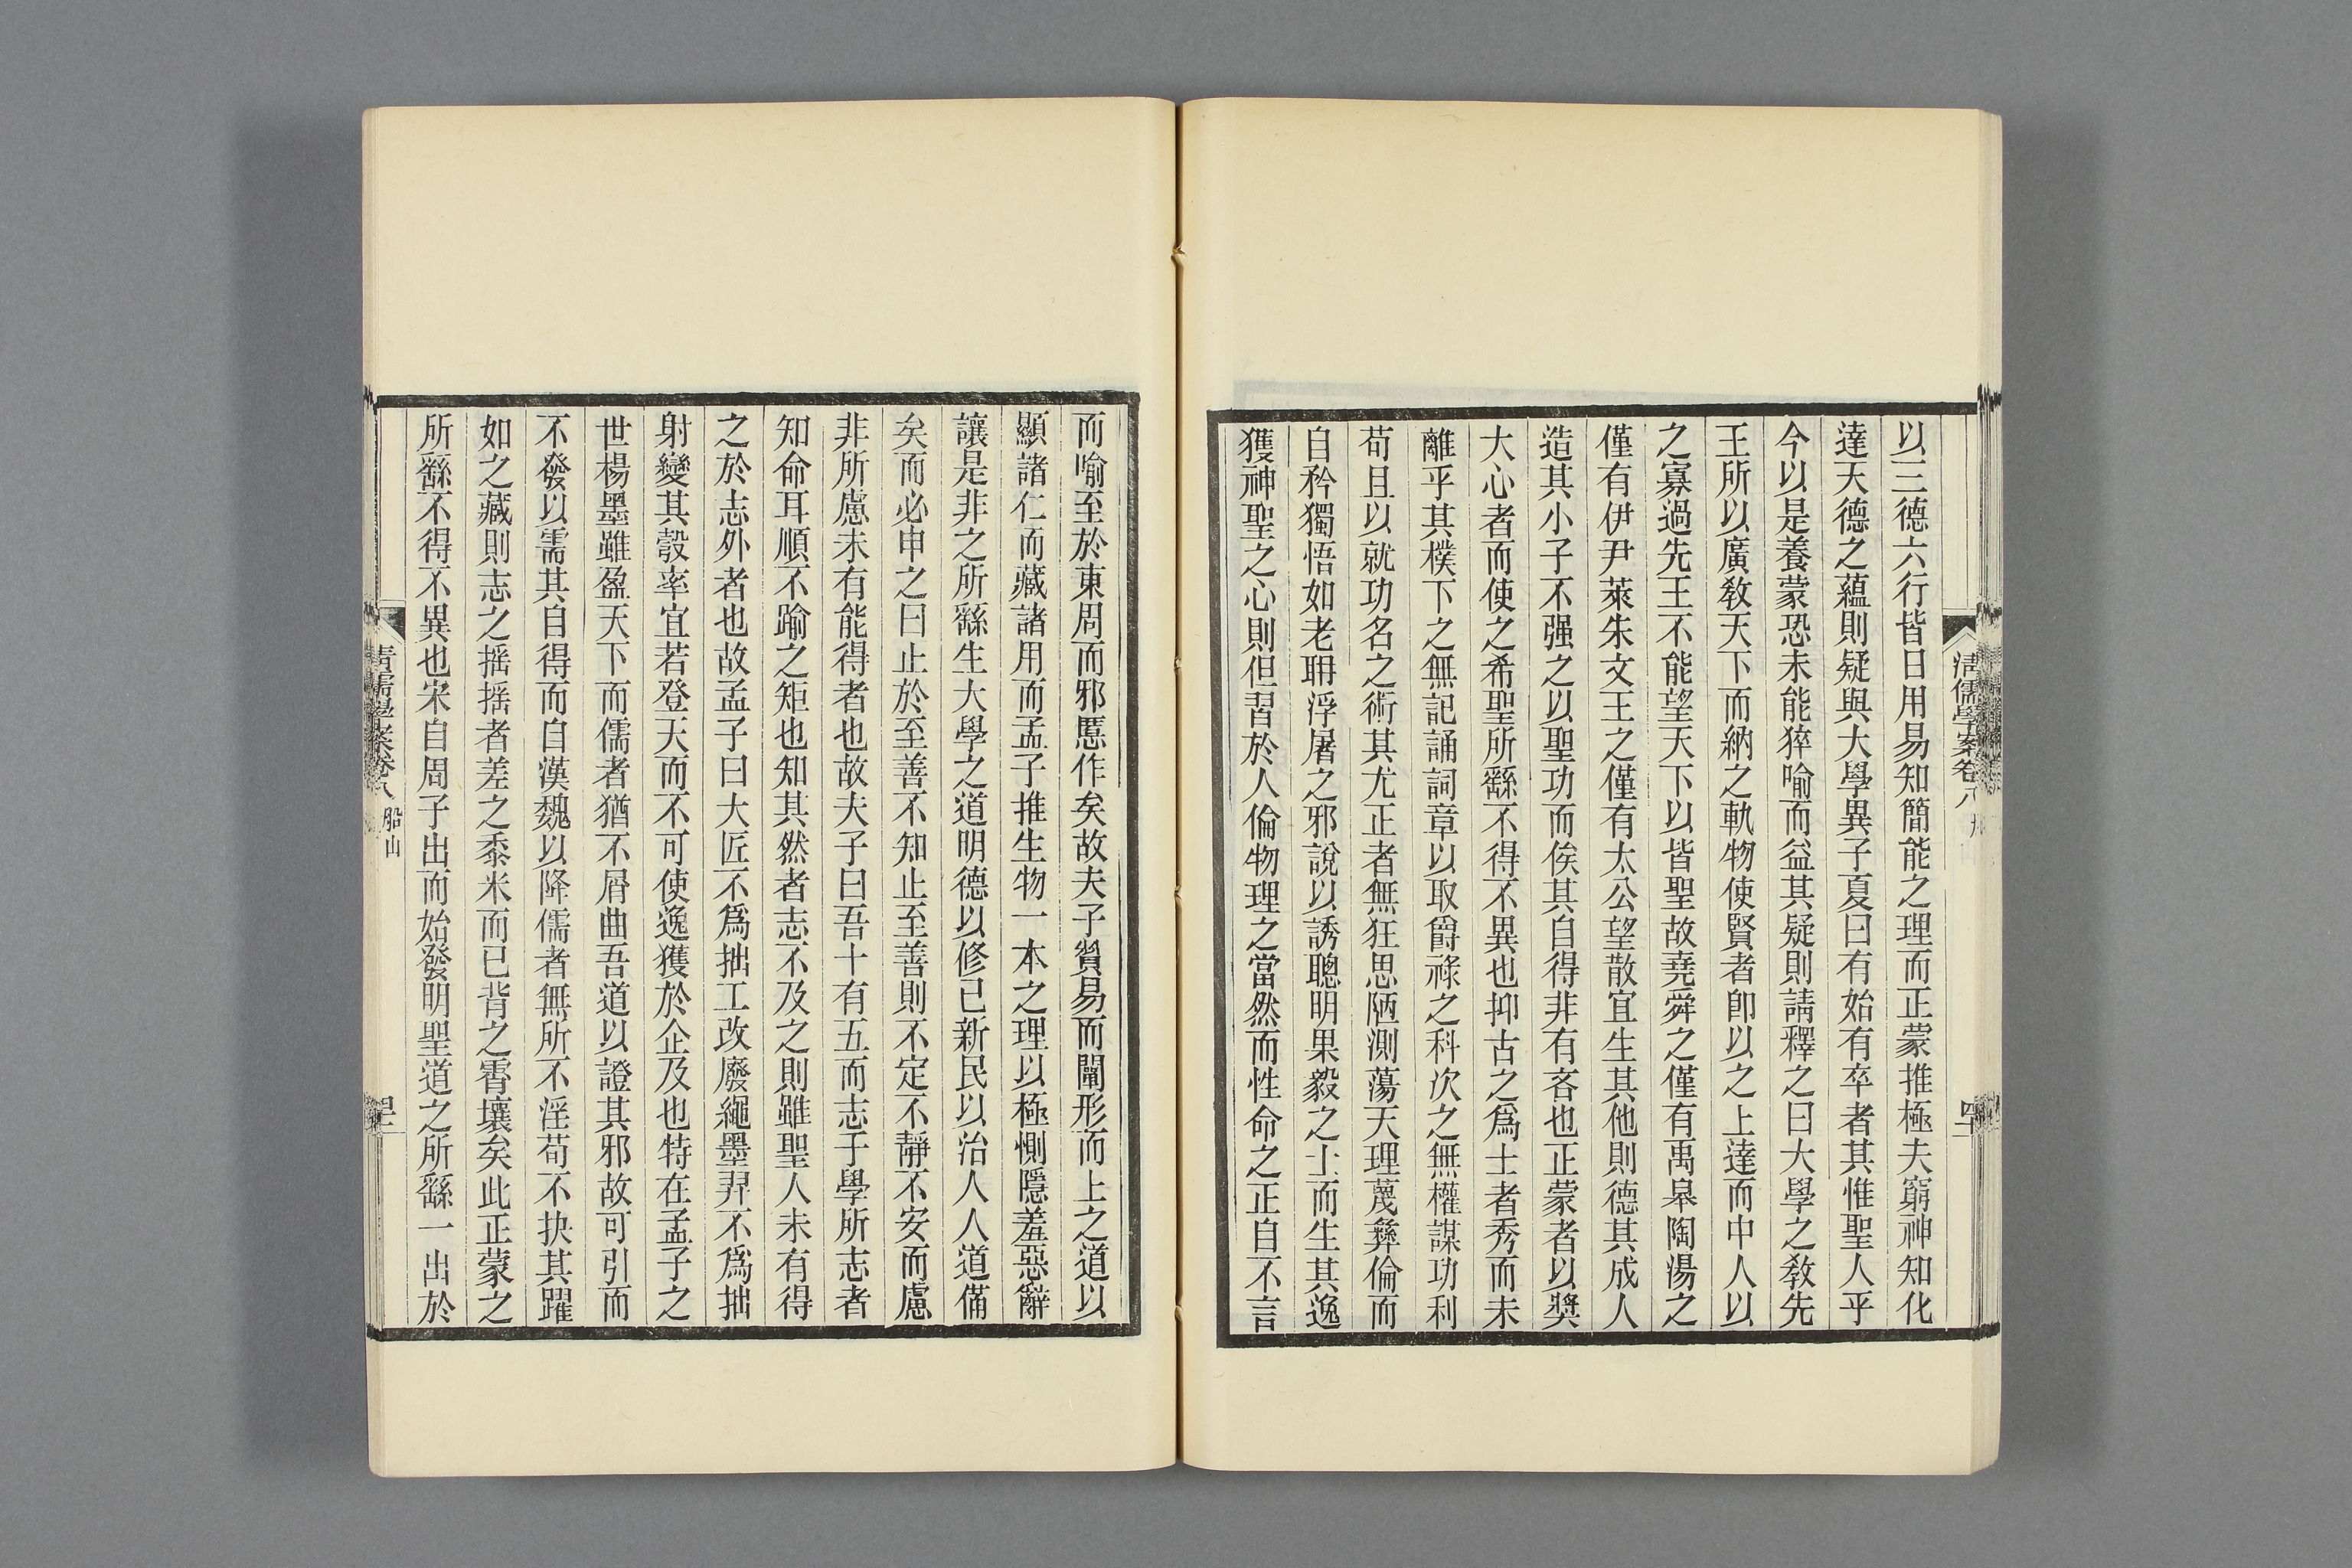 以三德六行皆日用易知簡能之理而正蒙推極夫窮神知化
達天德之蘊則疑與大學異子夏曰有始有卒者其惟聖人乎
今以是養蒙恐未能猝喻而益其疑則請釋之曰大學之敎先
王所以廣敎天下而納之軌物使賢者卽以之上達而中人以
之寡過先王不能望天下以皆聖故堯舜之僅有禹皋陶湯之
僅有伊尹萊朱文王之僅有太公望散宜生其他則德其成人
造其小子不强之以聖功而俟其自得非有吝也正蒙者以奬
大心者而使之希聖所繇不得不異也抑古之爲士者秀而未
離乎其樸下之無記誦詞章以取爵祿之科次之無權謀功利
苟且以就功名之術其尤正者無狂思陋測蕩天理蔑彝倫而
自矜獨悟如老聃浮屠之邪說以誘聰明果毅之士而生其逸
獲神聖之心則但習於人倫物理之當然而性命之正自不言
清儒學案卷八
而喻至於東周而邪慝作矣故夫子贊易而闡形而上之道以
顯諸仁而藏諸用而孟子推生物一本之理以極惻隱羞惡辭
讓是非之所繇生大學之道明德以修己新民以治人人道備
矣而必申之曰止於至善不知止至善則不定不靜不安而慮
非所慮未有能得者也故夫子曰吾十有五而志于學所志者
知命耳順不踰之矩也知其然者志不及之則雖聖人未有得
之於志外者也故孟子曰大匠不爲拙工改廢繩墨羿不爲拙
射變其彀率宜若登天而不可使逸獲於企及也特在孟子之
世楊墨雖盈天下而儒者猶不屑曲吾道以證其邪故可引而
不發以需其自得而自漢魏以降儒者無所不淫苟不抉其躍
如之藏則志之搖搖者差之黍米而已背之霄壤矣此正蒙之
所繇不得不異也宋自周子出而始發明聖道之所繇一出於
清儒學案卷八 船山